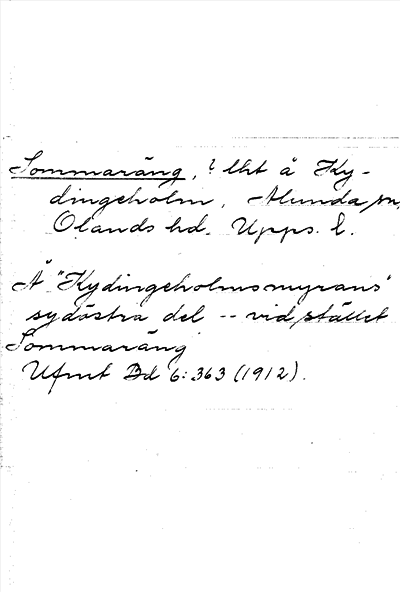 Sommaräng, ? lht å Ky-
dingeholm, Alunda sn,
Olands hd. Upps. l.
Å "Kydingeholmsmyrans"
sydöstra del -- vid stället
Sommaräng
Ufmt Bd 6: 363 (1912).